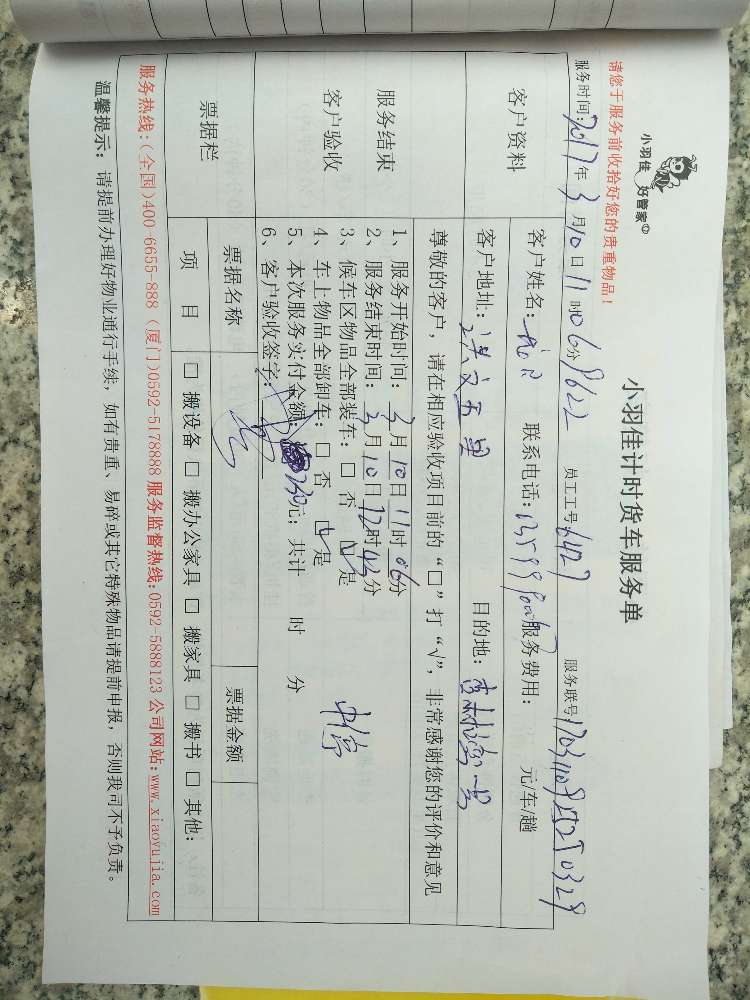 小羽佳 好管家
小羽佳计时货车服务单
请您于服务前收拾好您的贵重物品!
服务时间: 2017年3月10日11时06分 员工工号: 6427 服务联号:
客户资料
客户姓名: 联系电话: 服务费用: 元/车/趟
客户地址: 目的地:
服务结束
客户验收
尊敬的客户，请在相应验收项目前的“□”打“√”，非常感谢您的评价和意见
1、服务开始时间: 3月10日11时06分
2、服务结束时间: 3月10日12时43分
3、候车区物品全部装车: □ 否 ☑ 是
4、车上物品全部卸车: □ 否 ☑ 是
5、本次服务实付金额: 230元; 共计 时 分
6、客户验收签字:
票据栏
票据名称 票据金额
项 目 □ 搬设备 □ 搬办公家具 □ 搬家具 □ 搬书 □ 其他:
服务热线:(全国)400-6655-888 (厦门)0592-5178888 服务监督热线:0592-5888123 公司网站:www.xiaoyujia.com
温馨提示: 请提前办理好物业通行手续，如有贵重、易碎或其它特殊物品请提前申报，否则我司不予负责。